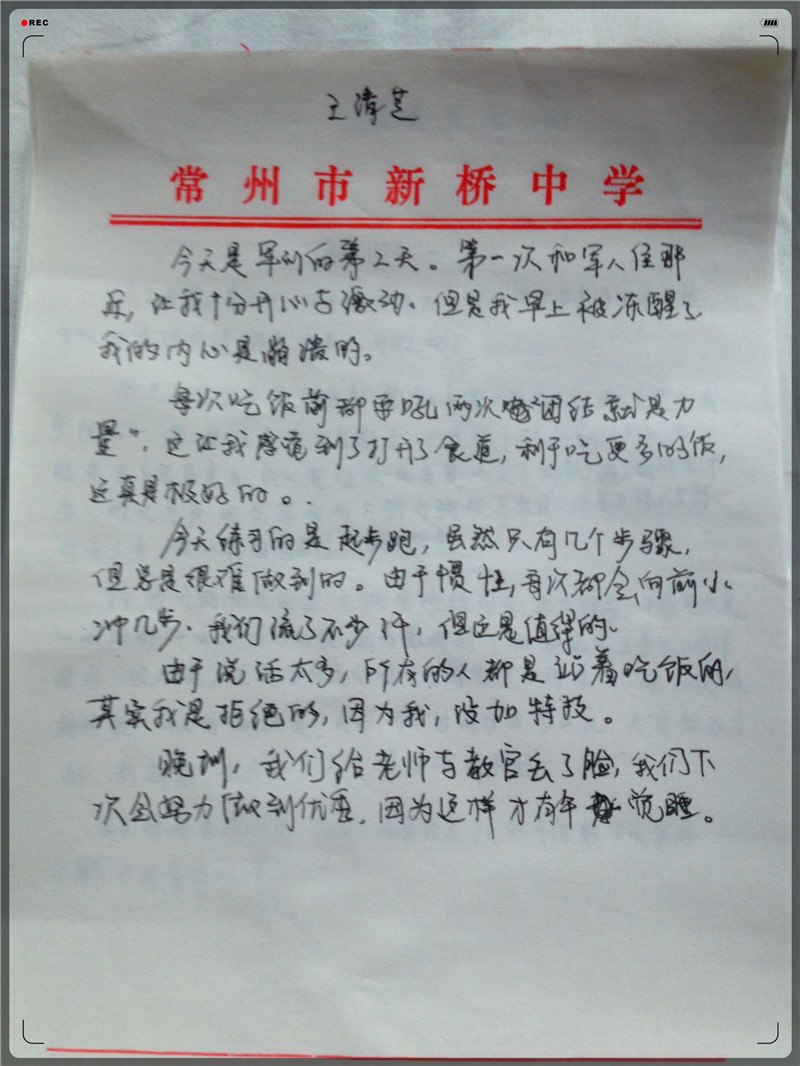 REC
王清芝
常州市新桥中学
今天是军训的第2天。第一次和军人住那
乐,让我十分开心与激动。但是我早上被冻醒了
我的内心是崩溃的。
每次吃饭前都要吼两次“团结就是力
量”。这让我感觉到了打开了食道,利于吃更多的饭,
这真是极好的。.
今天练习的是起步跑,虽然只有几个步骤,
但总是很难做到的。由于惯性,每次都会向前小
冲几步。我们流了不少汗,但这是值得的。
由于说话太多,所有的人都是站着吃饭的,
其实我是拒绝的,因为我,没加特技。
晚训,我们给老师与教官丢了脸,我们下
次会努力做到优秀,因为这样才有年觉睡。